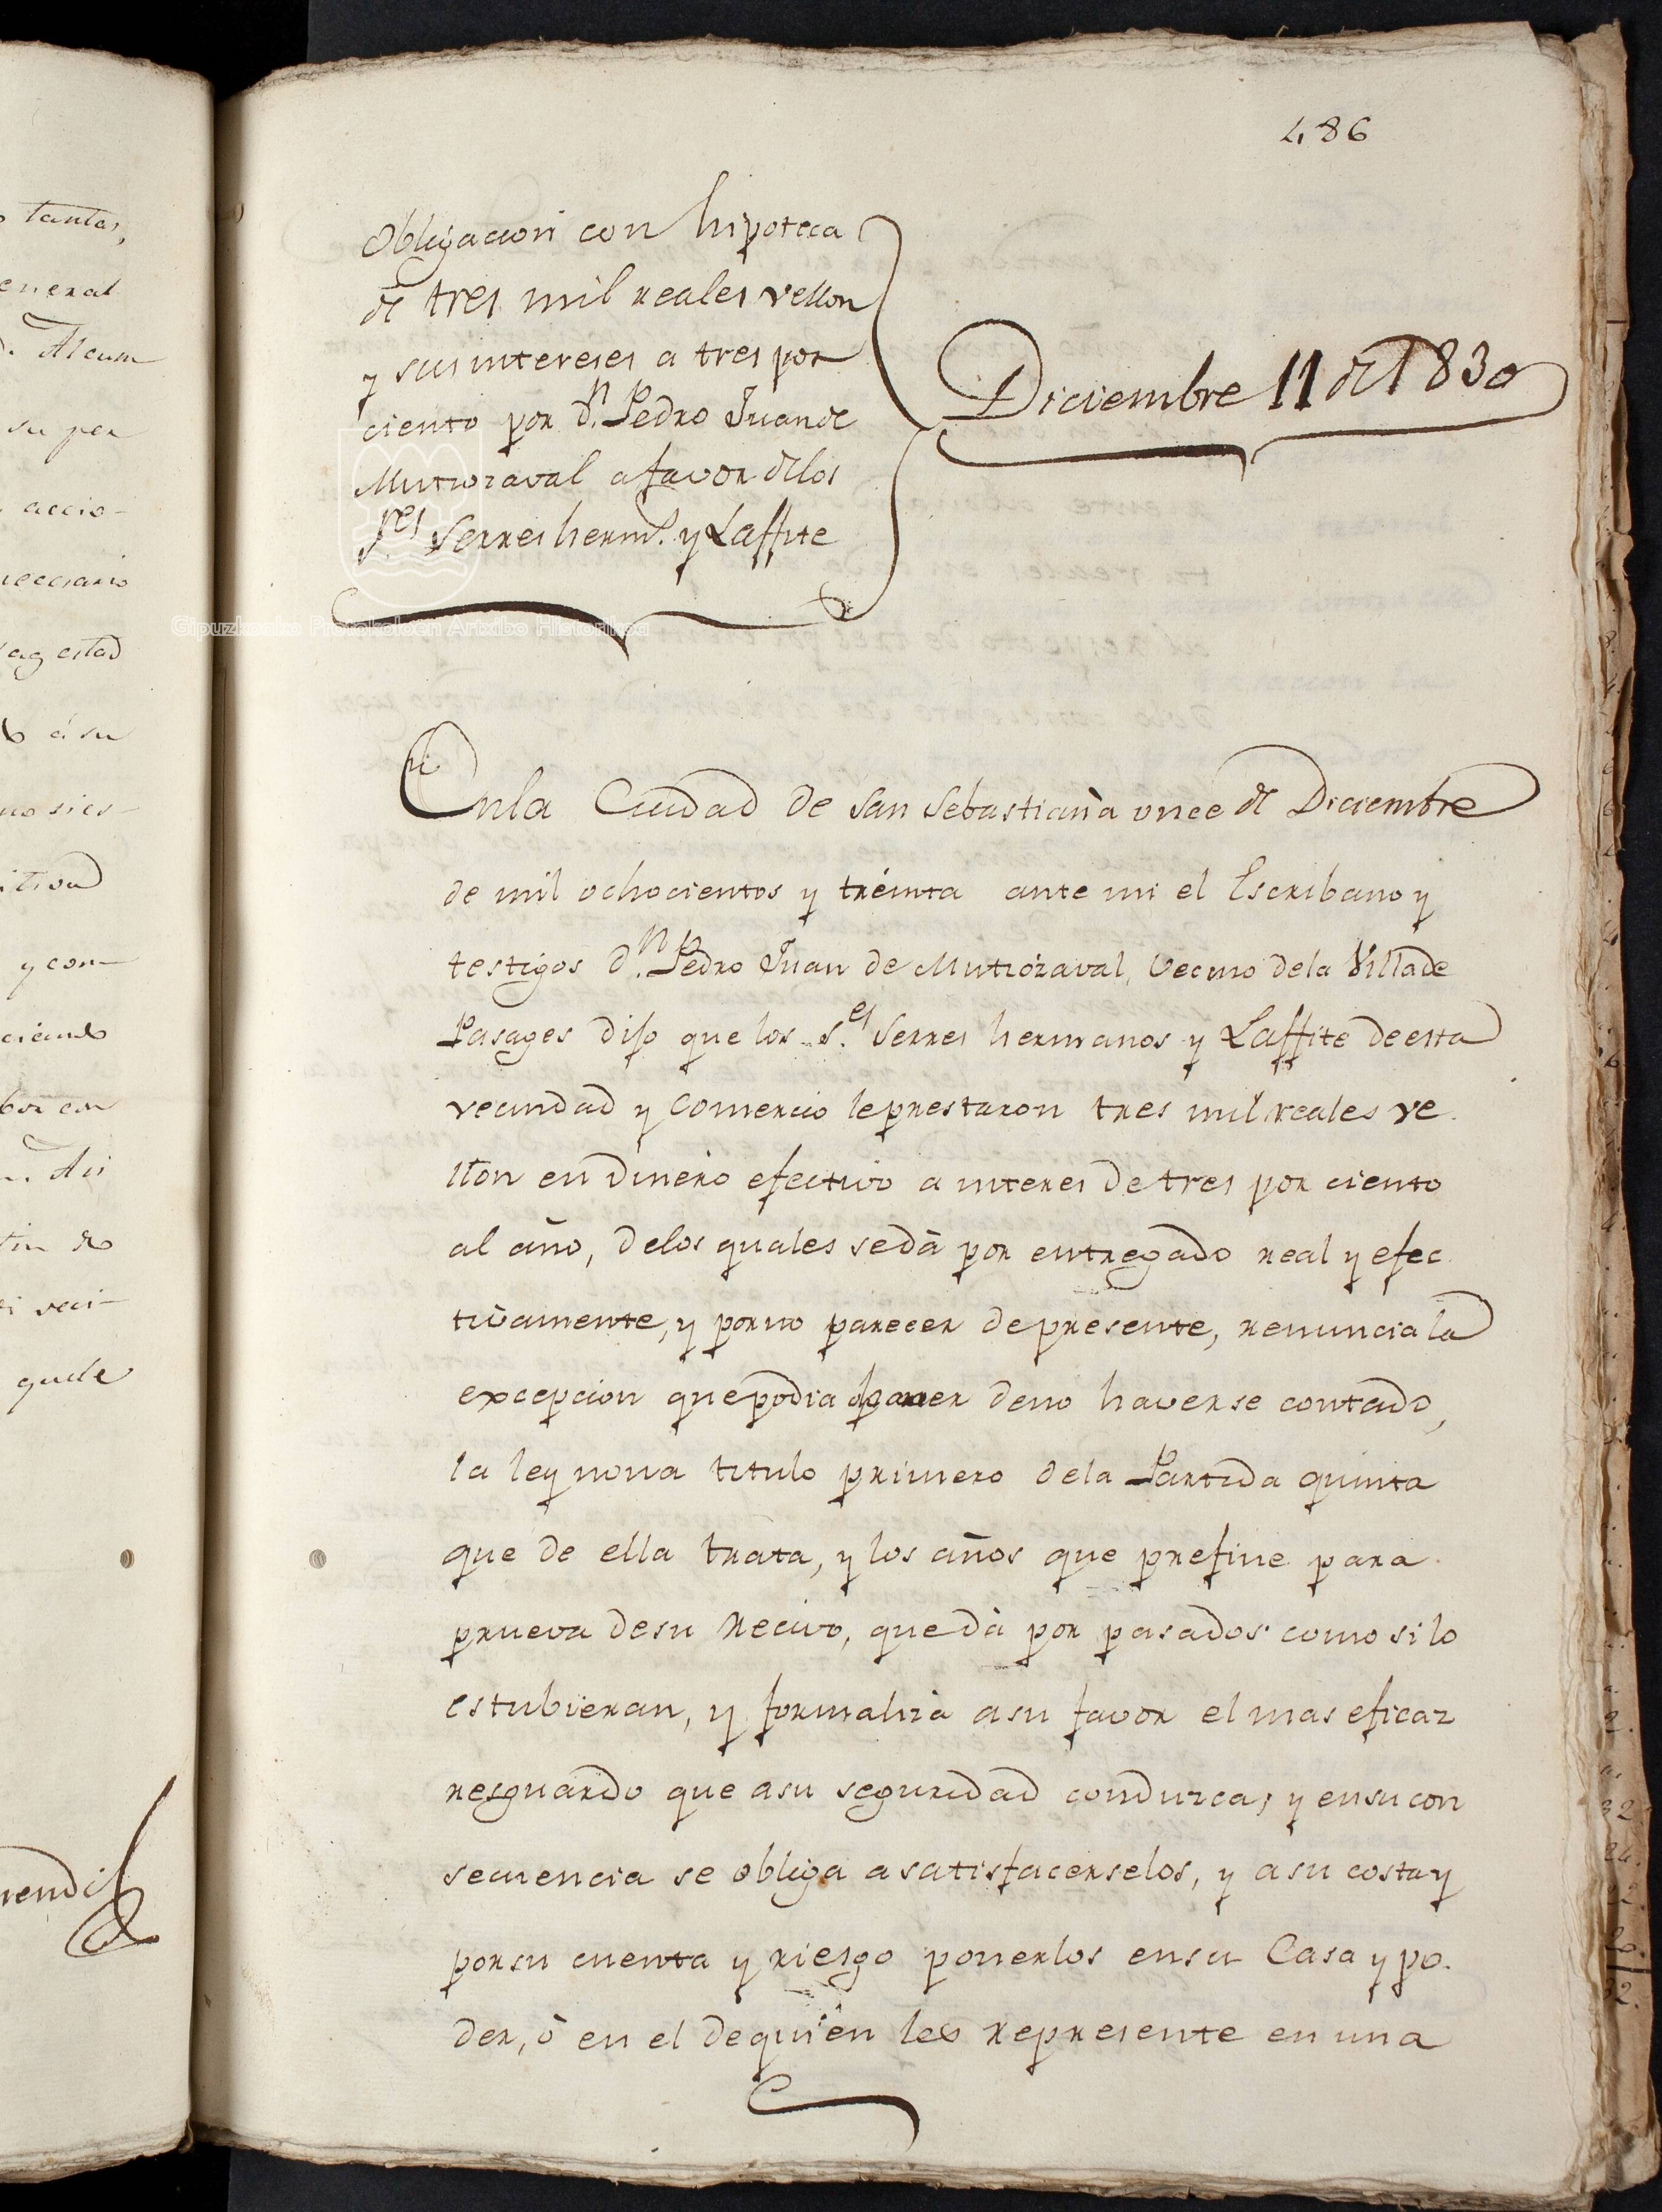 tantas,
eneral
Alcum
su per
accio-
necesario
agestad
á su
no sies-
y con-
ciendo
bor con
Asi
tin
veci-
quele
486
Obligacion con hipoteca
de tres mil reales vellon
y sus intereses a tres por
ciento por Dn. Pedro Juan de
Mutiozaval a favor de los
Sres Serres herms. y Laffite
Diciembre 11 de 1830
Gipuzkoako Protokoloen Artxibo Historikoa
En la Ciudad de San Sebastian à once de Diciembre
de mil ochocientos y treinta ante mi el Escribano y
testigos Dn. Pedro Juan de Mutiozaval, Vecino de la Villa de
Pasages dijo que los S.es Serres hermanos y Laffite de esta
vecindad y Comercio le prestaron tres mil reales ve
llon en dinero efectivo a interes de tres por ciento
al año, de los quales se dà por entregado real y efec
tivamente, y por no parecer de presente, renuncia la
excepcion que podia oponer de no haverse contado,
la ley nona titulo primero de la Partida quinta
que de ella trata, y los años que prefine para
prueva de su recivo, que dà por pasados como si lo
estubieran, y formaliza a su favor el mas eficaz
resguardo que a su seguridad conduzca, y en su con
secuencia se obliga a satisfacerselos, y a su costa y
por su cuenta y riesgo ponerlos en su Casa y po.
der, ò en el de quien les represente en una